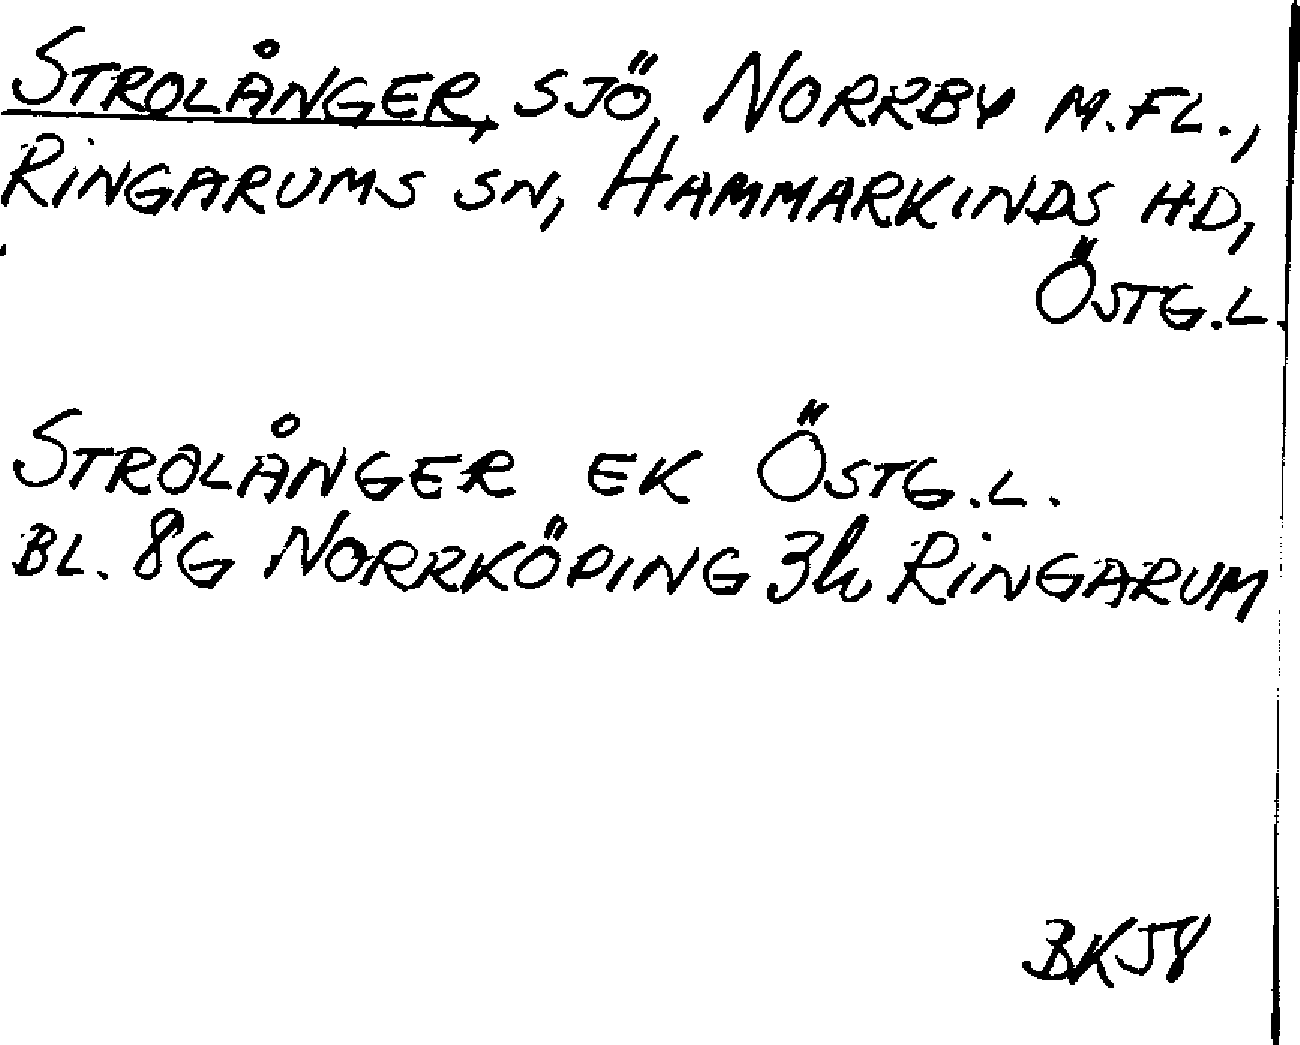 STROLÅNGER, SJÖ, NORRBY M.FL.,
RINGARUMS SN, HAMMARKINDS HD,
ÖSTG.L.
STROLÅNGER EK ÖSTG.L.
BL. 8G NORRKÖPING 3h RINGARUM
BKJ8